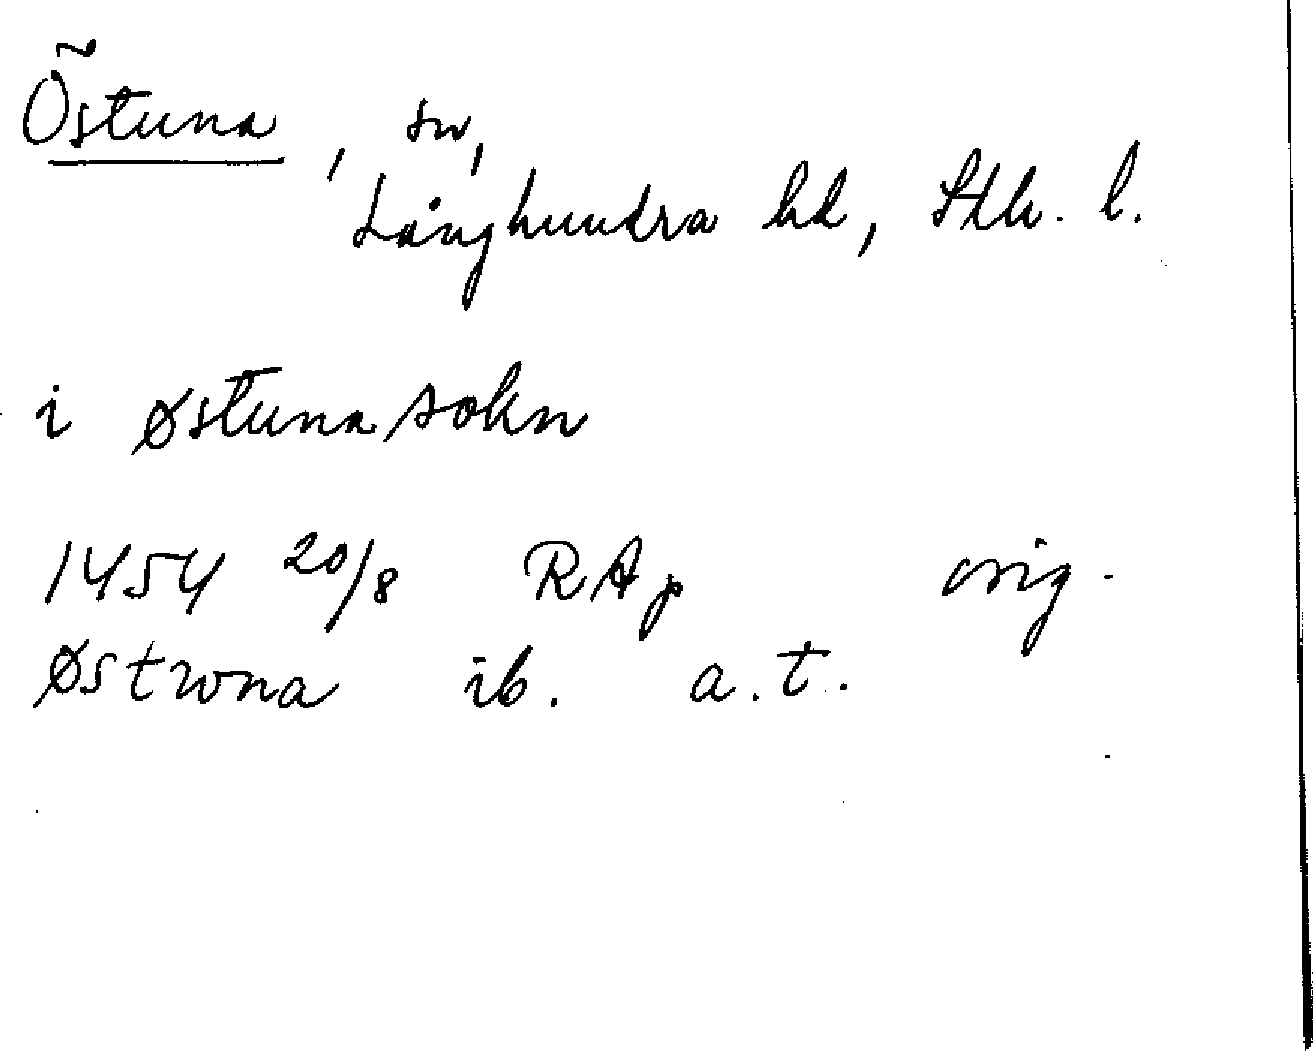 Östuna, sn,
Långhundra hd, Sthr. l.
i østuna sokn
1454 20/8 RAp orig.
østwna ib. a.t.